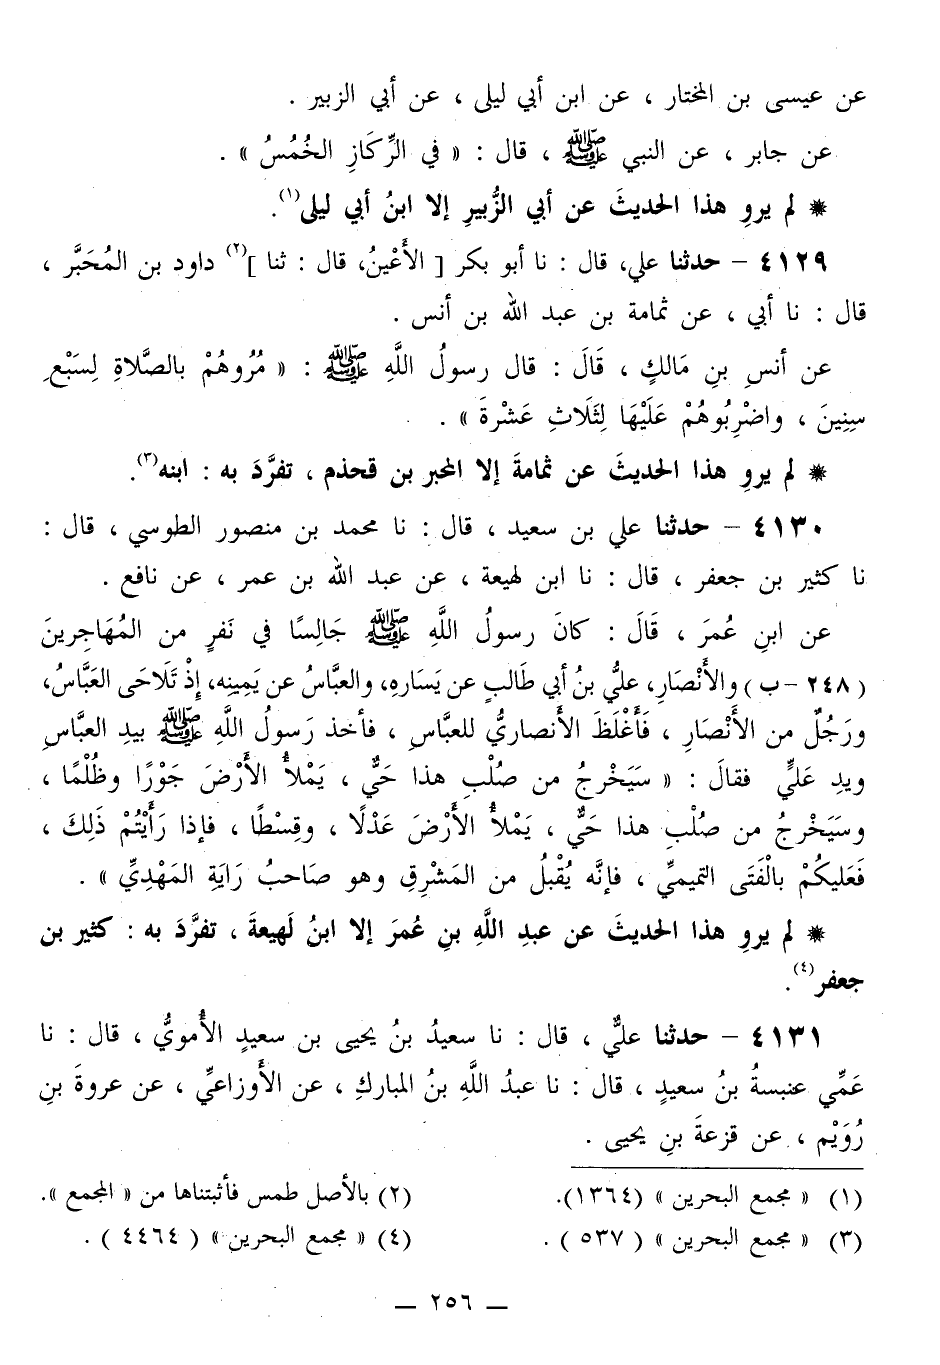 عن عيسى بن المختار ، عن ابن أبي ليلى ، عن أبي الزبير .
عن جابر ، عن النبي ﷺ ، قال : « في الرِّكَازِ الخُمُسُ » .
* لم يروِ هذا الحديثَ عن أبي الزُّبيرِ إلا ابنُ أبي ليلى(١).
٤١٢٩ – حدثنا علي، قال : نا أبو بكر [ الأَعْينُ، قال : ثنا ](٢) داود بن المُحَبَّر ،
قال : نا أبي ، عن ثمامة بن عبد الله بن أنس .
عن أنسِ بنِ مَالكٍ ، قَالَ : قال رسولُ اللَّهِ ﷺ : « مُرُوهُمْ بالصَّلاةِ لِسَبْعِ
سِنِينَ ، واضْرِبُوهُمْ عَلَيْهَا لِثَلَاثِ عَشْرَةَ » .
* لم يروِ هذا الحديثَ عن ثمامةَ إلا المحبر بن قحذم ، تفرَّدَ به : ابنه(٣).
٤١٣٠ – حدثنا علي بن سعيد ، قال : نا محمد بن منصور الطوسي ، قال :
نا كثير بن جعفر ، قال : نا ابن لهيعة ، عن عبد الله بن عمر ، عن نافع .
عن ابنِ عُمرَ ، قَالَ : كانَ رسولُ اللَّهِ ﷺ جَالِسًا في نَفرٍ من المُهَاجِرينَ
( ٢٤٨ – ب ) والأَنْصَارِ، عليُّ بنُ أبي طَالبٍ عن يَسَارهِ، والعبَّاسُ عن يَمِينِه، إِذْ تَلَاحَى العَبَّاسُ،
ورَجُلٌ من الأَنْصَارِ ، فَأَغْلَظَ الأَنصاريُّ للعبَّاسِ ، فأخذ رَسولُ اللَّهِ ﷺ بيدِ العبَّاسِ
ويدِ عَليٍّ فقالَ : « سَيَخْرجُ من صُلْبِ هذا حَيٌّ ، يَمْلأُ الأَرْضَ جَوْرًا وظُلْمًا ،
وسَيَخْرجُ من صُلْبِ هذا حَيٌّ ، يَمْلأُ الأَرْضَ عَدْلًا ، وقِسْطًا ، فإذا رَأَيْتُمْ ذَلِكَ ،
فَعَليكُمْ بالْفَتَى التميميِّ ، فإنَّه يُقْبلُ من المَشْرِقِ وهو صَاحبُ رَايَةِ المَهْدِيِّ » .
* لم يروِ هذا الحديثَ عن عبدِ اللَّهِ بنِ عُمرَ إلا ابنُ لَهيعةَ ، تفرَّدَ به : كثير بن
جعفر(٤).
٤١٣١ – حدثنا عليٌّ ، قال : نا سعيدُ بنُ يحيى بن سعيدٍ الأُمويُّ ، قال : نا
عَمِّي عنبسةُ بنُ سعيدٍ ، قال : نا عبدُ اللَّهِ بنُ المباركِ ، عن الأَوزاعيِّ ، عن عروةَ بنِ
رُوَيْم ، عن قزعةَ بنِ يحيى .
(١) « مجمع البحرين » (١٣٦٤). (٢) بالأصل طمس فأثبتناها من « المجمع ».
(٣) « مجمع البحرين » ( ٥٣٧ ) . (٤) « مجمع البحرين » ( ٤٤٦٤ ) .
— ٢٥٦ —